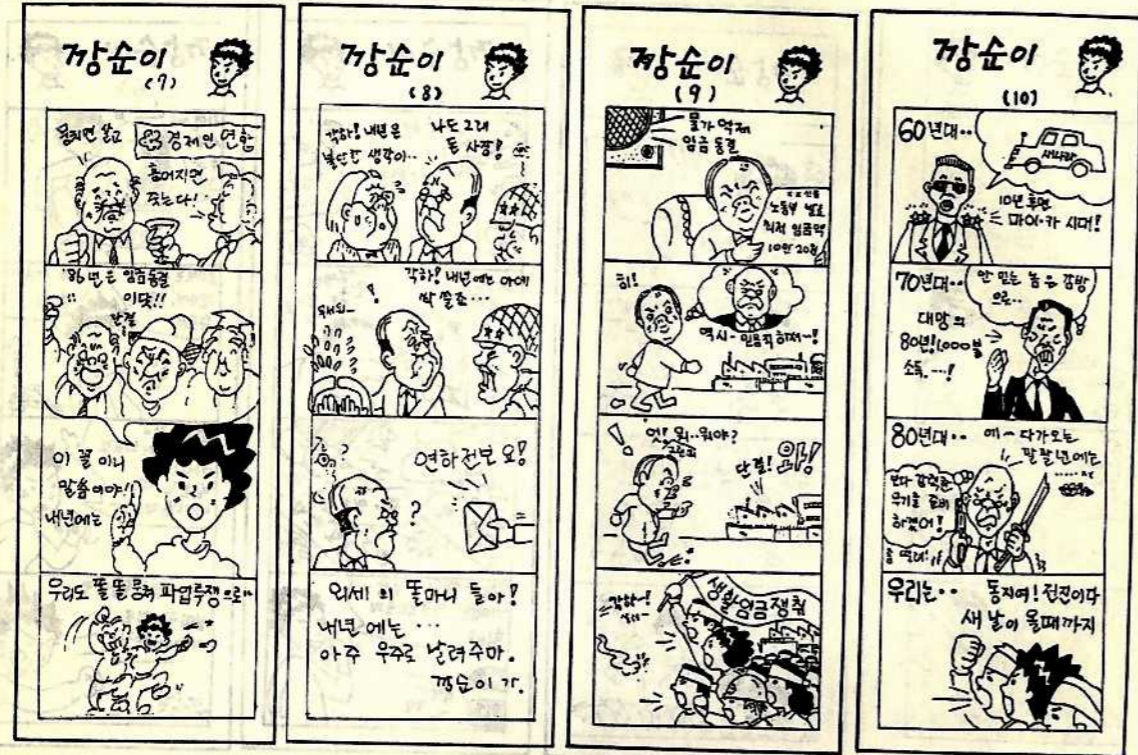 깡순이
(7)
뭉치면 살고
경제인 연합
흩어지면
죽는다!
'86년은 임금동결
이닷!!
단결
이 꼴 이니
말씀이야!!
내년에는
우리도 똘똘 뭉쳐 파업투쟁으로
깡순이
(8)
각하! 내년은
불안한 생각이..
나도 그래
동 사장!
각하! 내년에는 아예
싹 쓸죠...
?
연하전보요!
?
외세의 똘마니 들아!
내년에는 ...
아주 우주로 날려주마.
깡순이 가.
깡순이
(9)
물가 억제
임금 동결
노동부 발표
최저 임금액
10만 20원
히!
역시- 믿음직하져~!
엇! 뭐..뭐야?
단결! 와!
각하~!
생활임금쟁취
깡순이
(10)
60년대..
새나라
10년 후면
마이·카 시대!
70년대..
안 믿는 놈은 감방
으로..
대망의
80년! 1,000불
소득....!
80년대..
에~ 다가오는
팔팔년에는
보다 강력한
무기를 준비
하겠어!
우리는..
동지여! 전진이다
새 날이 올때까지